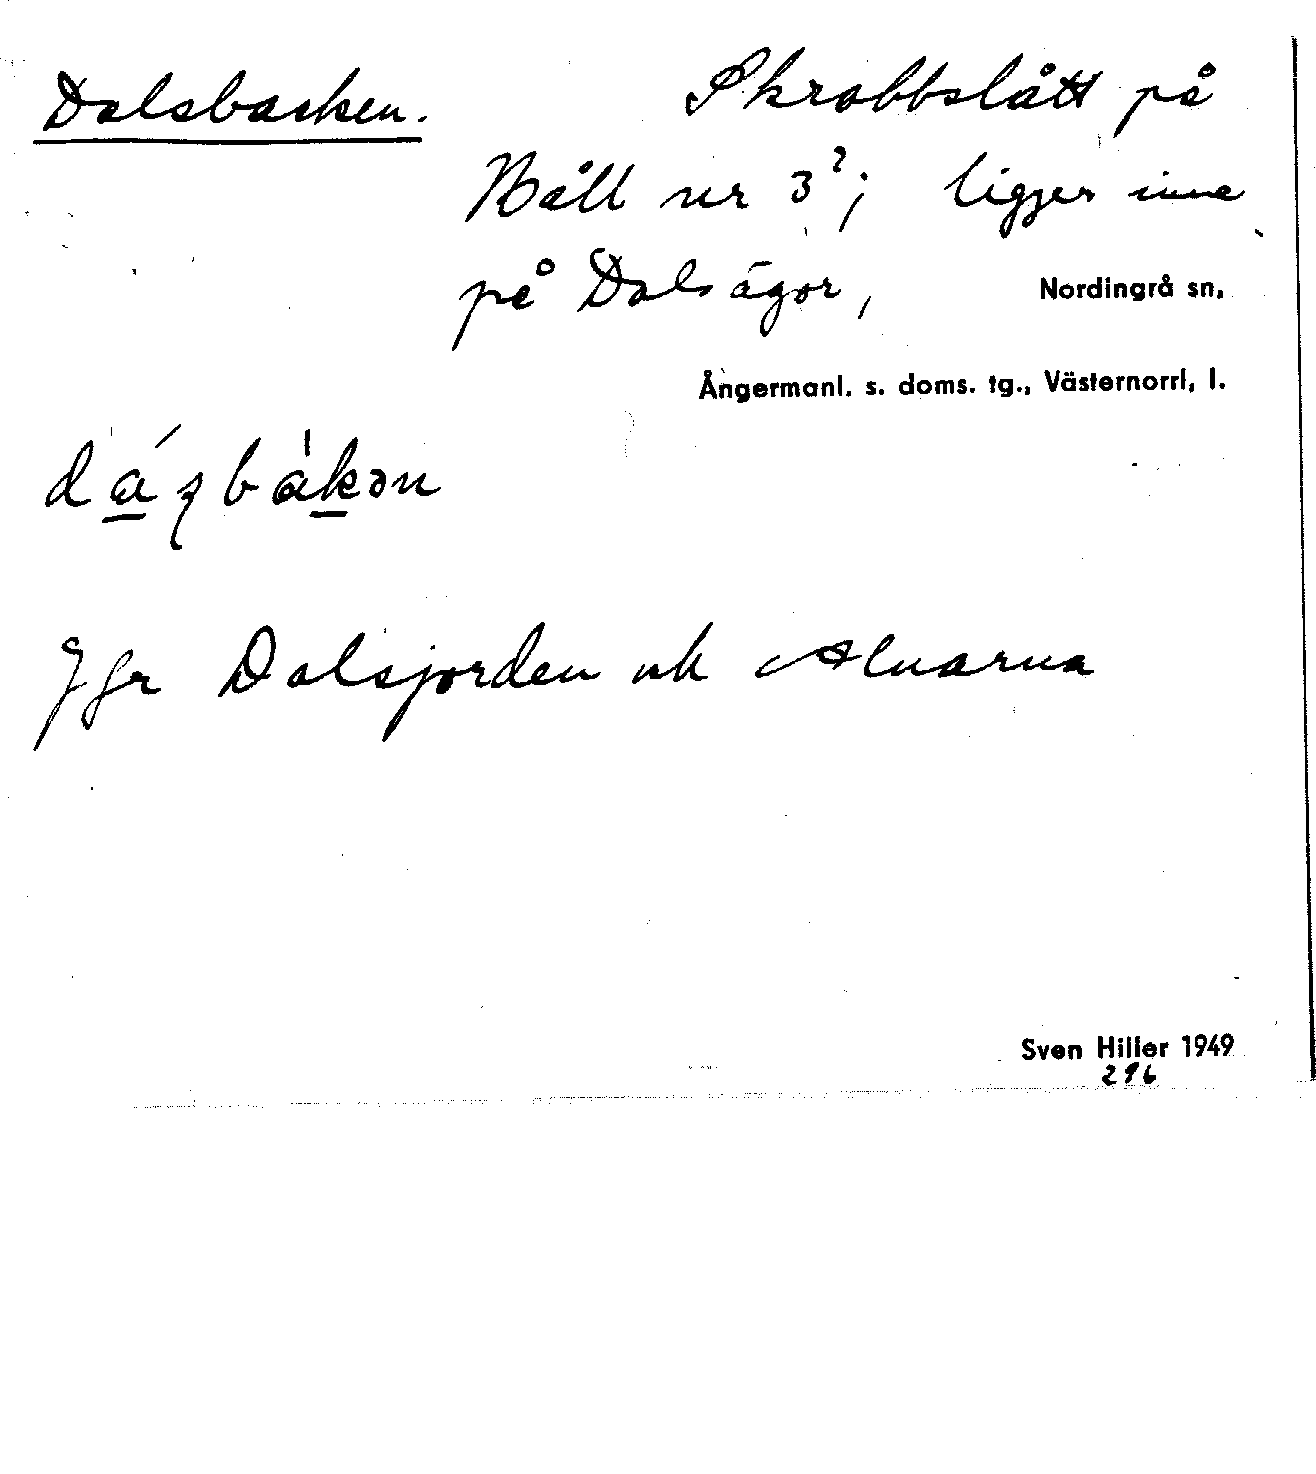 Dalsbacken. Skrabbslått på
Båll nr 3²; ligger inne
på Dals ägor, Nordingrå sn,
Ångermanl. s. doms. tg., Västernorrl. l.
Jfr Dalsjorden ok Alnarna
Sven Hiller 1949
296